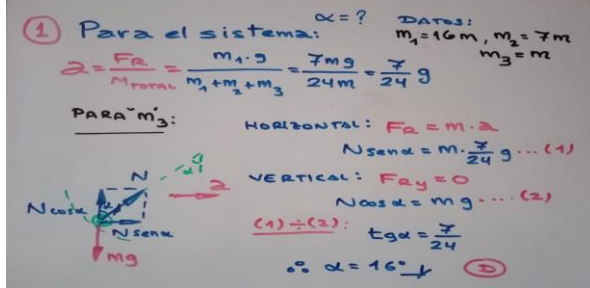 ① Para el sistema: α = ? DATOS:
m₁=16m, m₂=7m
m₃=m
a = F_R / M_TOTAL = m₁·g / (m₁+m₂+m₃) = 7mg / 24m = 7/24 g
PARA "m₃":
HORIZONTAL: F_R = m·a
N senα = m·7/24 g ... (1)
VERTICAL: F_Ry = 0
N cosα = mg .... (2)
(1)÷(2): tgα = 7/24
∴ α = 16° D
N
α
a
N cosα
α
N senα
mg